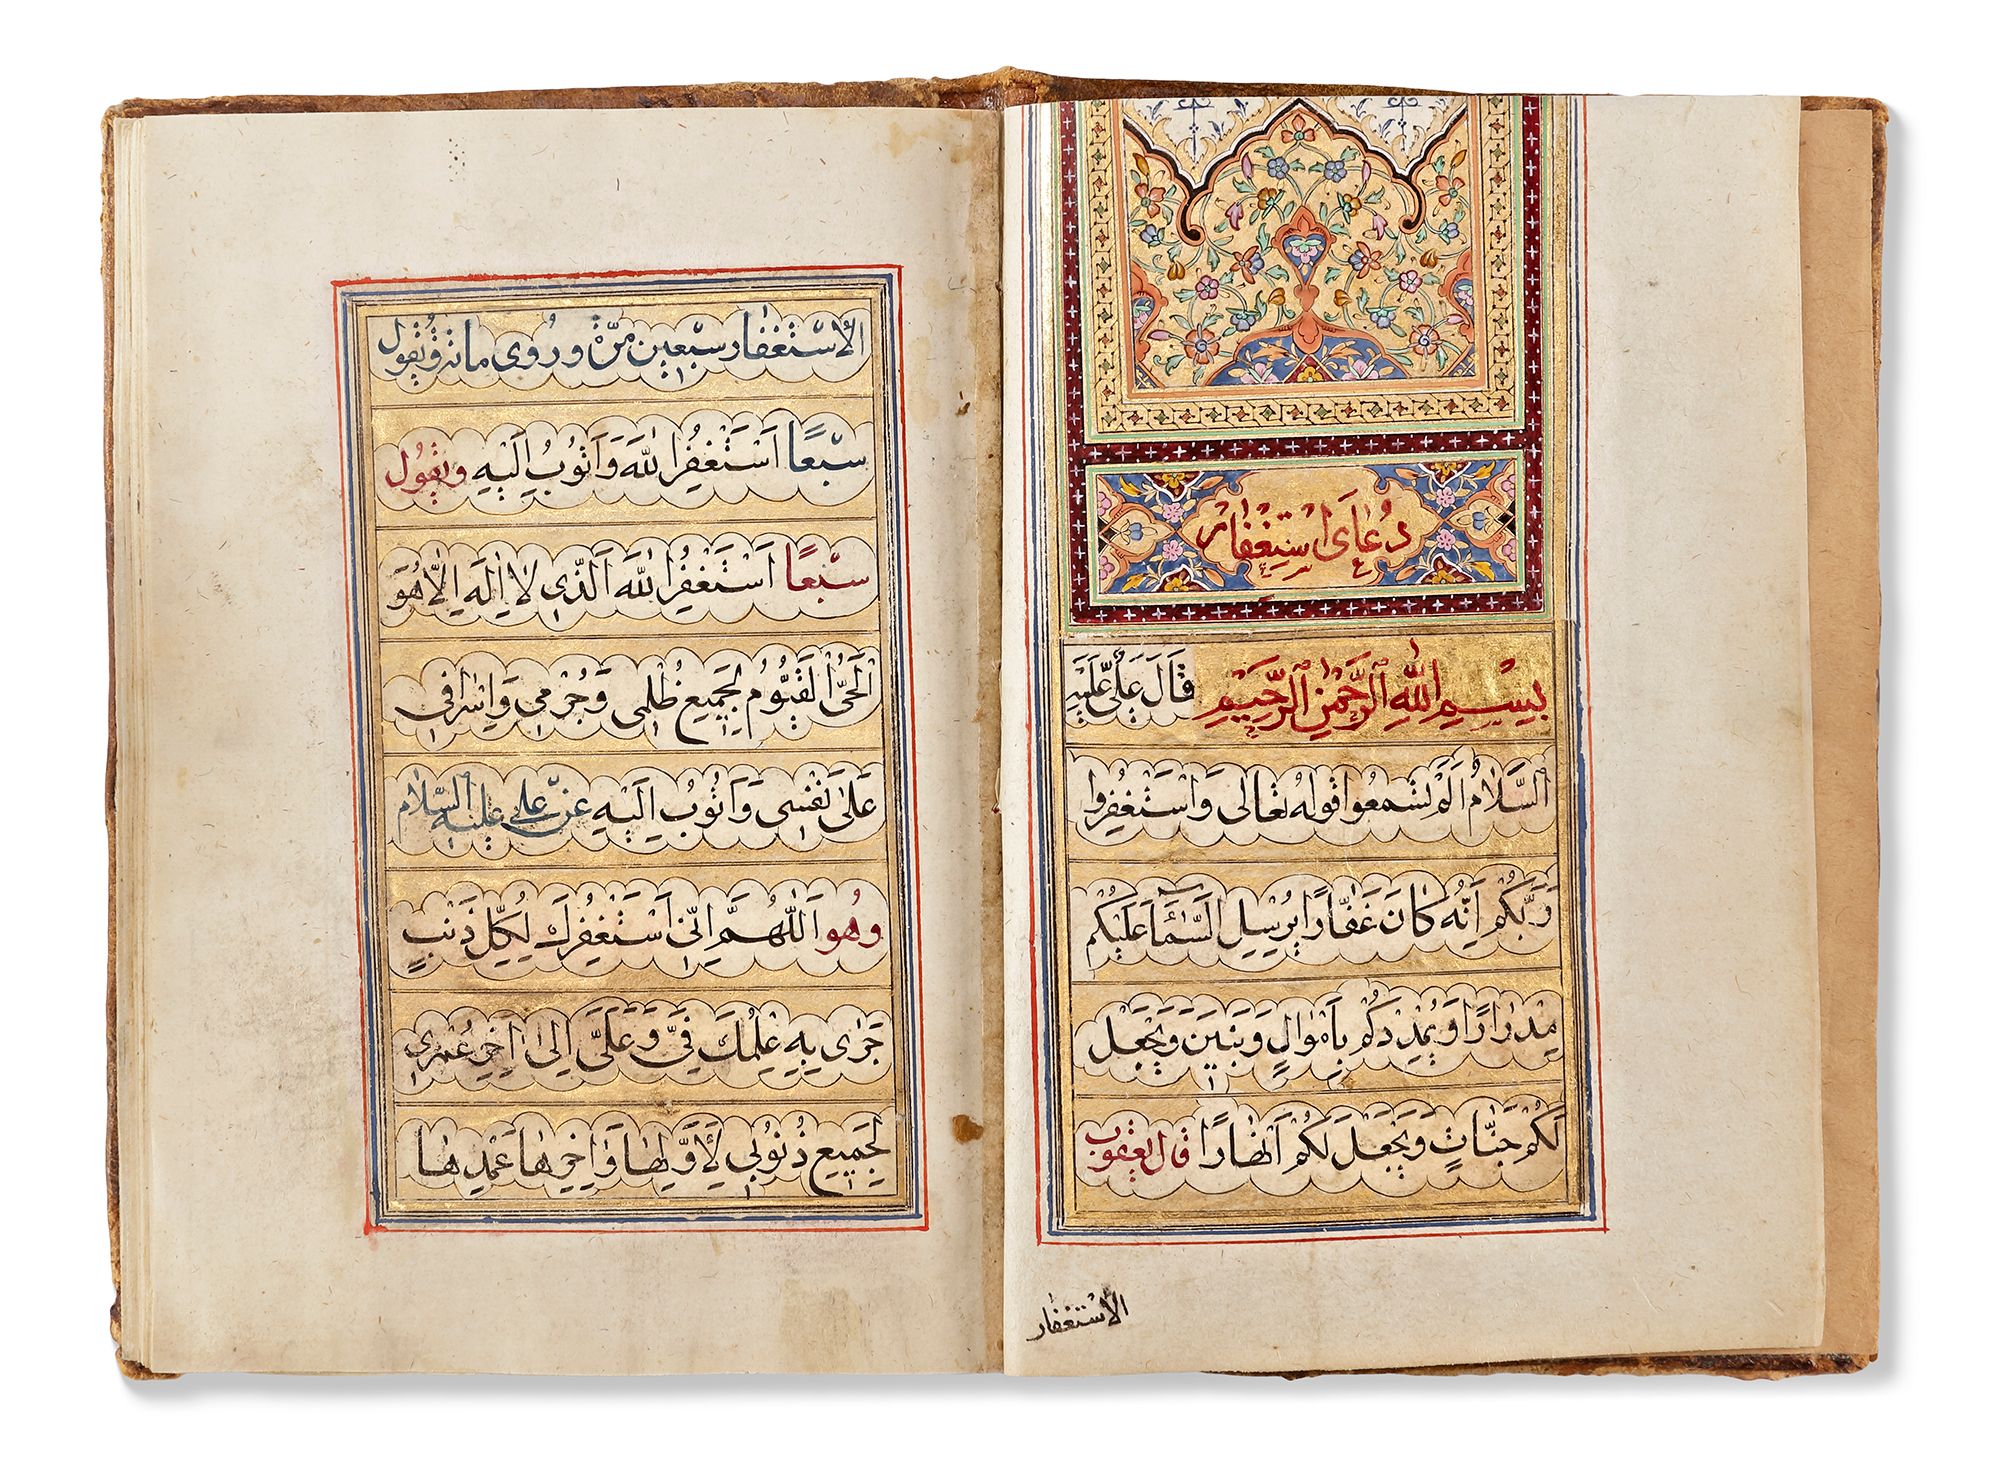 دُعَاىَ اسْتِغْفَارْ
بِسْمِ اللّٰهِ الرَّحْمٰنِ الرَّحِيمِ قَالَ عَلَىٌّ عَلَيْهِ
السَّلَامُ اَلَمْ تَسْمَعُوا قَوْلَهُ تَعَالٰى وَاسْتَغْفِرُوا
رَبَّكُمْ اِنَّهُ كَانَ غَفَّارًا يُرْسِلِ السَّمَآءَ عَلَيْكُمْ
مِدْرَارًا وَيُمْدِدْكُمْ بِاَمْوَالٍ وَبَنِينَ وَيَجْعَلْ
لَكُمْ جَنَّاتٍ وَيَجْعَلْ لَكُمْ اَنْهَارًا قال يعقوب
الاسْتغفار
الاسْتَغْفَار سَبْعِين مَرّة وَرُوِى مائة وَيَقُول
سَبْعًا اَسْتَغْفِرُ اللّٰهَ وَاَتُوبُ اِلَيْهِ وَيَقُول
سَبْعًا اَسْتَغْفِرُ اللّٰهَ الَّذِى لَا اِلٰهَ اِلَّا هُوَ
الْحَىُّ الْقَيُّومُ لِجَمِيعِ ظُلْمِى وَجُرْمِى وَاِسْرَافِى
عَلٰى نَفْسِى وَاَتُوبُ اِلَيْهِ عَنْ عَلِىٍّ عَلَيْهِ السَّلَام
وهُو اَللّٰهُمَّ اِنِّى اَسْتَغْفِرُكَ لِكُلِّ ذَنْبٍ
جَرٰى بِهِ عِلْمُكَ فِىَّ وَعَلَىَّ اِلٰى اٰخِرِ عُمْرِى
لِجَمِيعِ ذُنُوبِى لِاَوَّلِهَا وَاٰخِرِهَا عَمْدِهَا